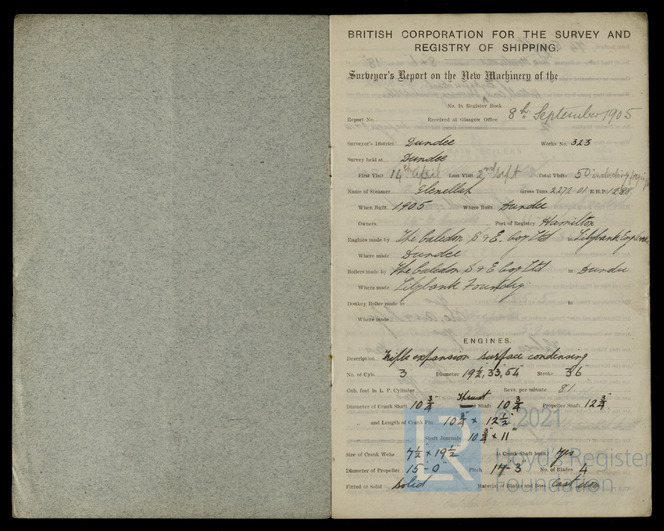 BRITISH CORPORATION FOR THE SURVEY AND
REGISTRY OF SHIPPING.
Surveyor's Report on the New Machinery of the
No. in Register Book
Report No. Received at Glasgow Office 8th September 1905
Surveyor's District Dundee Works No. 323
Survey held at Dundee
First Visit 14th April Last Visit 2nd Sept Total Visits 50 including
Name of Steamer Glenellah Gross Tons 2272.01 E.H.P.
When Built 1905 Where Built Dundee
Owners Port of Registry Hamilton
Engines made by The Caledon S & E. Coy Ltd Lilybank
Where made Dundee
Boilers made by The Caledon S & E Coy Ltd in Dundee
Where made Lilybank Foundry
Donkey Boiler made by in
Where made
ENGINES.
Description Triple expansion surface condensing
No. of Cyls. 3 Diameter 19½, 33, 54 Stroke 36
Cub. feet in L. P. Cylinder Revs. per minute 81
Diameter of Crank Shaft 10 ¾ Thrust Shaft 10 ¾ Propeller Shaft 12 ¾
and Length of Crank Pin 10 ¾ × 12 ½
Shaft Journals 10 ¾ × 11"
Size of Crank Webs 7½ × 19½ Is Crank Shaft built yes
Diameter of Propeller 15-0" Pitch 17-3" No. of Blades 4
Fitted or Solid Solid Material of Blades cast iron
© 2021
LR
Lloyd's Register
Foundation